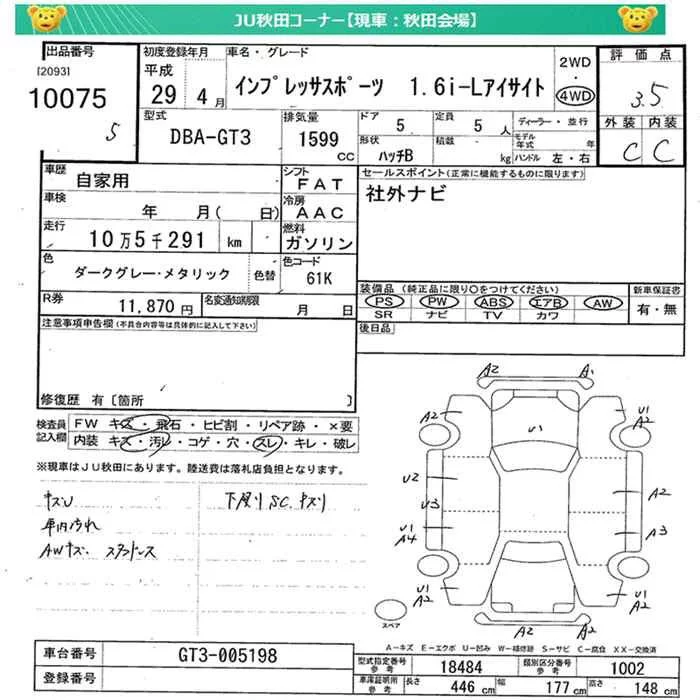 JU秋田コーナー【現車：秋田会場】
出品番号
[2093]
10075
5
初度登録年月
平成
29 4月
車名・グレード
インプレッサスポーツ 1.6i-Lアイサイト
2WD
・
4WD
評価点
3.5
外装 内装
C C
型式
DBA-GT3
排気量
1599
CC
ドア
5
定員
5人
形状
ハッチB
積載
kg
ディーラー・並行
モデル年式 年
ハンドル 左・右
車歴
自家用
シフト
FAT
車検
年 月(日)
冷房
AAC
走行
10万5千291 km
燃料
ガソリン
色
ダークグレー・メタリック
色替
色コード
61K
R券
11,870円
名変通知期限
月 日
セールスポイント(正常に機能するものに限ります)
社外ナビ
装備品 (純正品に限り○をつけてください)
PS PW ABS エアB AW
SR ナビ TV カワ
新車保証書
有・無
後日品
注意事項申告欄(不具合内容等は具体的に記入して下さい)
修復歴 有〔箇所 〕
検査員記入欄
FW キズ・飛石・ヒビ割・リペア跡・×要
内装 キズ・汚レ・コゲ・穴・スレ・キレ・破レ
※現車はJU秋田にあります。陸送費は落札店負担となります。
キズU
車内汚れ
AWキズ
下廻りSC.キズリ
A2 A1
A2 U1 U1 A2
U2 A2
U3
U1 A4 A3
U1 A2 U1 A2
A2 A2
スペア
A-キズ E-エクボ U-凹み W-補修跡 S-サビ C-腐食 XX-交換済
車台番号
GT3-005198
登録番号
型式指定番号 参考
18484
類別区分番号 参考
1002
車庫証明用 参考
長さ 446cm
幅 177cm
高さ 148cm